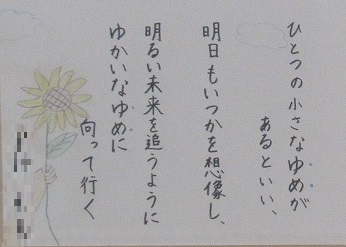 ひとつの小さなゆめが
あるといい、
明日もいつかを想像し、
明るい未来を追うように
ゆかいなゆめに
向って行く